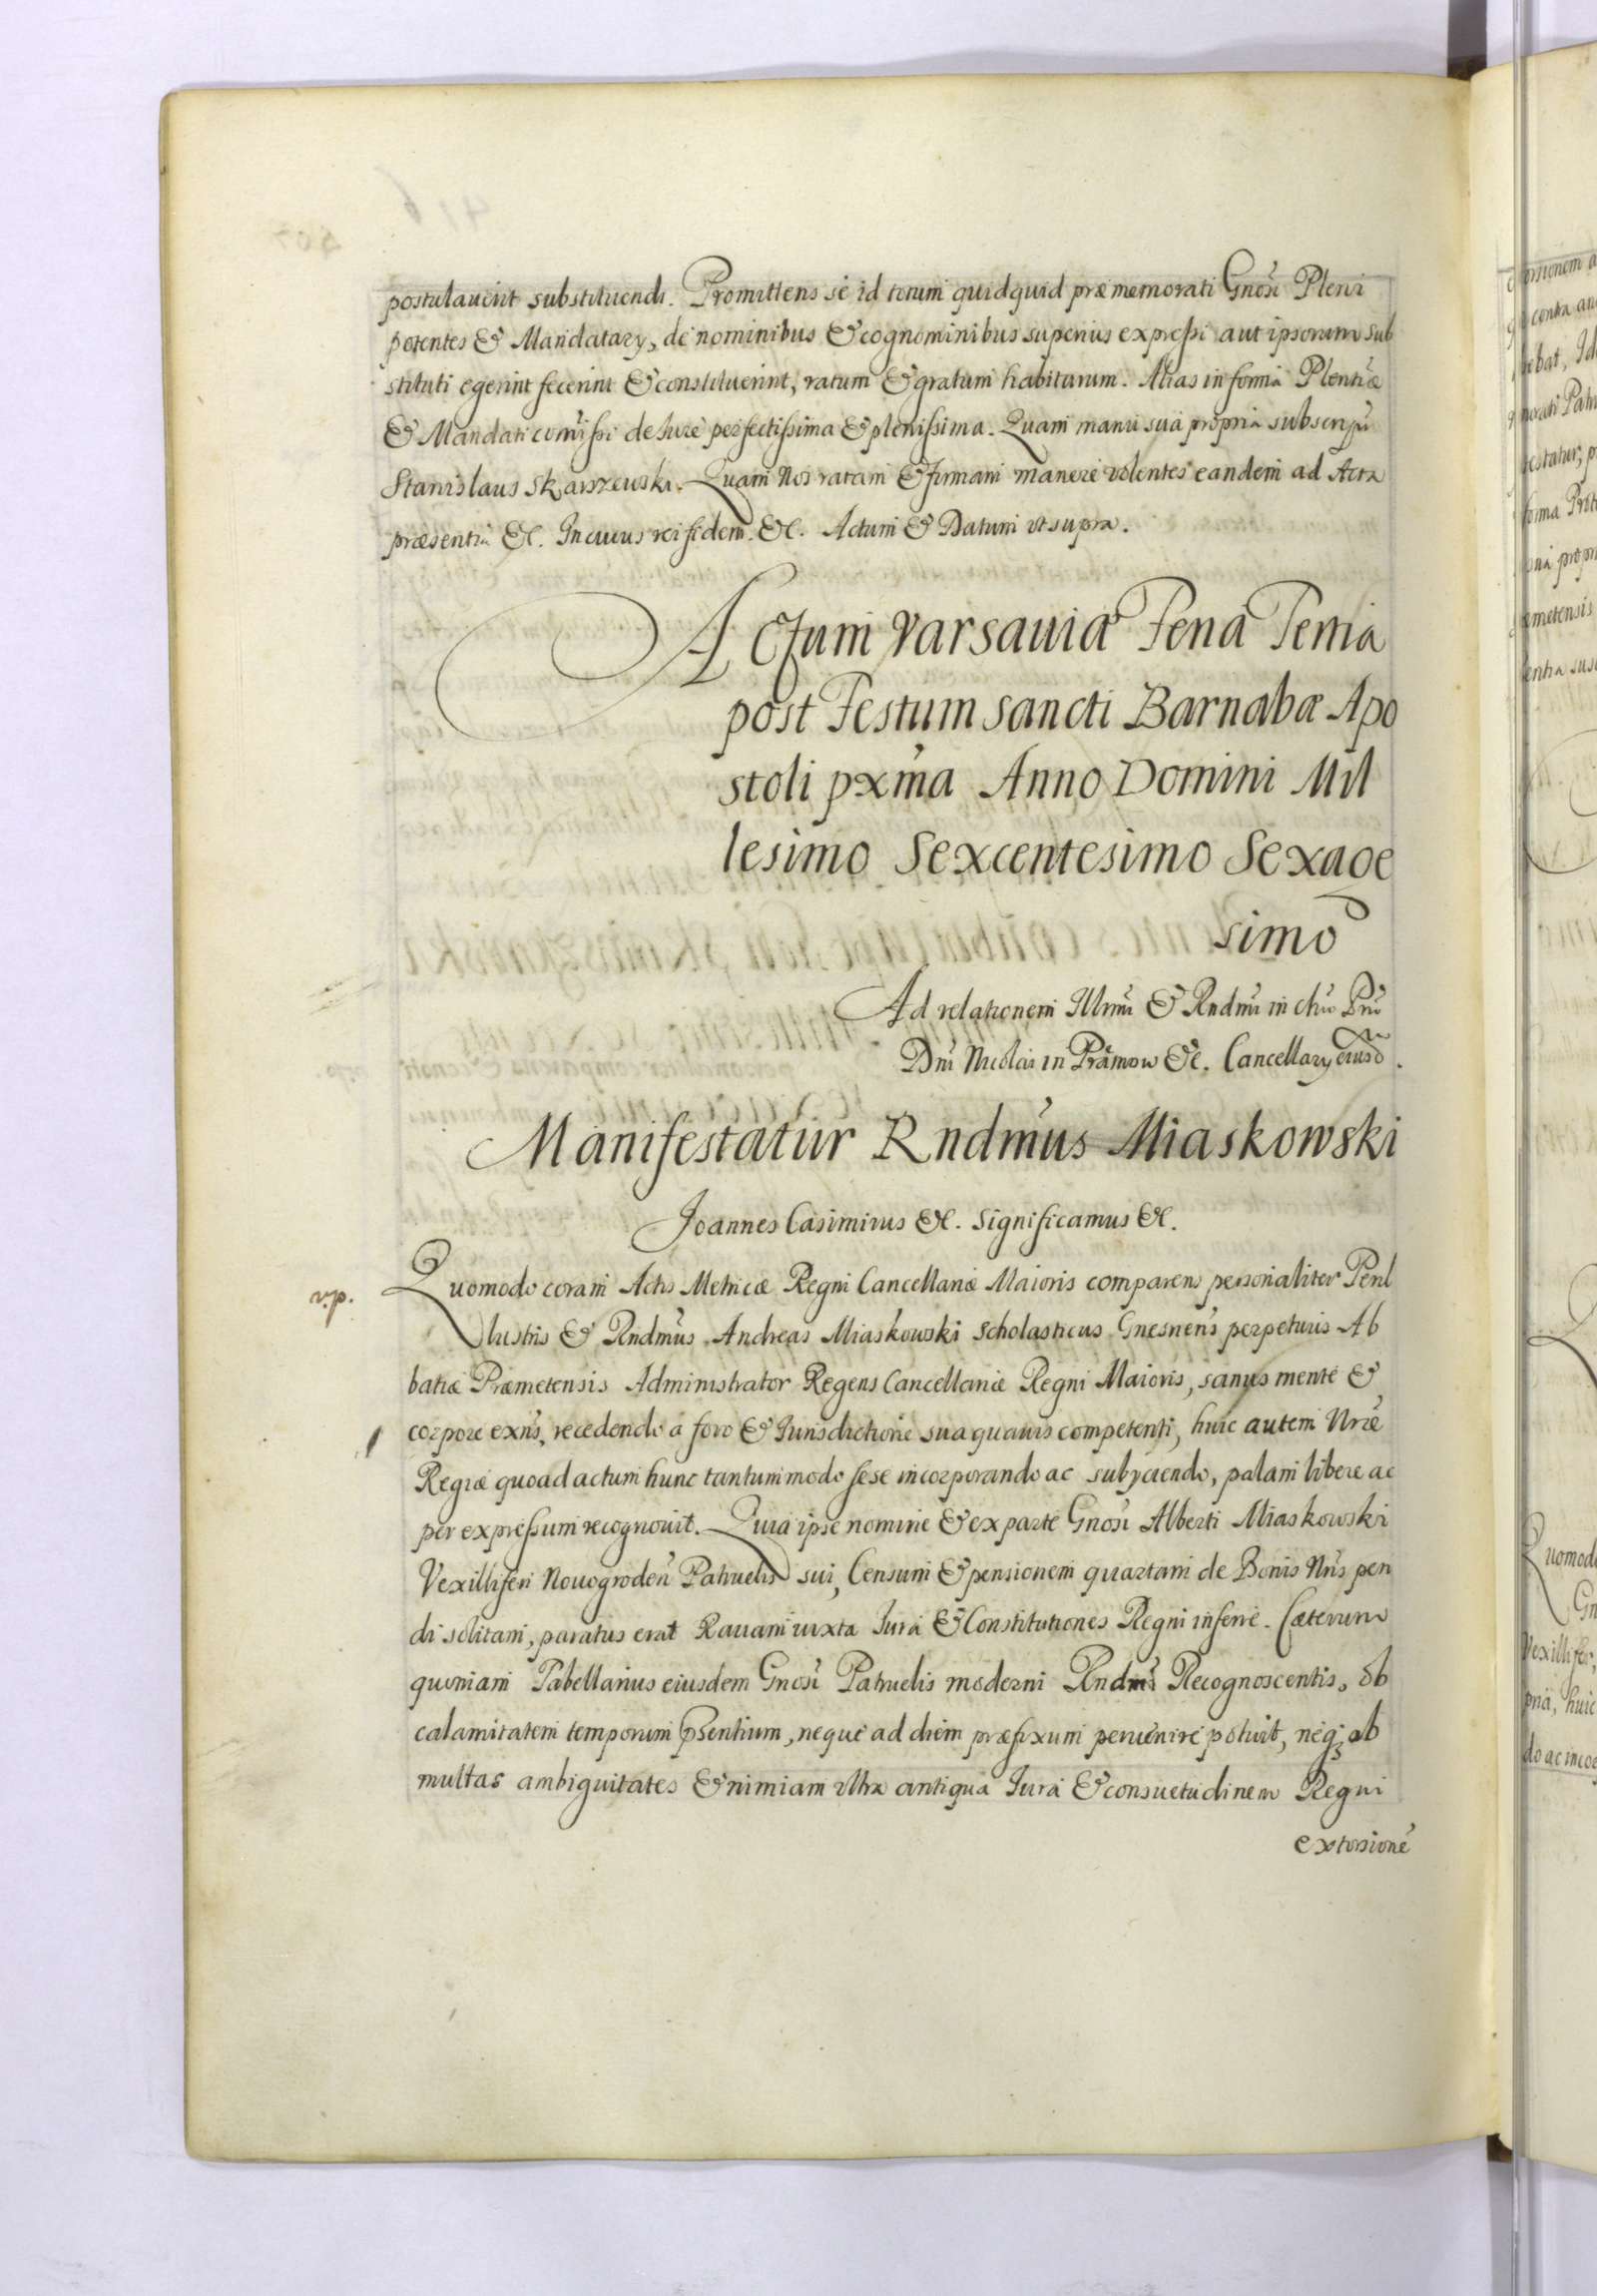 postulauerit substituendi. Promittens se id totum quidquid præmemorati Gnosi Pleni
potentes & Mandatary, de nominibus & cognominibus superius expressi aut ipsorum sub
stituti egerint fecerint & constituerint, ratum & gratum habiturum. Alias in forma Plentiæ
& Mandati comissi de Iure perfectissima & plenissima. Quam manu sua propria subscripsi
Stanislaus Skarszewski. Quam Nos ratam & firmam manere volentes eandem ad Acta
præsentia &c. In cuius rei fidem &c. Actum & Datum vt supra.
Actum Varsauiæ Feria Tertia
post Festum Sancti Barnabæ Apo
stoli pxma Anno Domini Mil
lesimo Sexcentesimo Sexage
simo
Ad relationem Illrmi & Rndmi in Chro Pris
Dni Nicolai in Prazmow &c. Cancellary eiusd.
Manifestatur Rndmus Miaskowski
Joannes Casimirus &c. Significamus &c.
v.p.
Quomodo coram Actis Metricæ Regni Cancellariæ Maioris comparens personaliter Peril
lustris & Rndmus Andreas Miaskowski Scholasticus Gnesnens perpetuus Ab
batiæ Præmetensis Administrator Regens Cancellariæ Regni Maioris, sanus mente &
corpore exns, recedendo a foro & Iurisdictione sua quauis competenti, huic autem Nræ
Regiæ quoad actum hunc tantummodo sese incorporando ac subyciendo, palam libere ac
per expressum recognouit. Quia ipse nomine & ex parte Gnosi Alberti Miaskowski
Vexilliferi Nouogroden Patruelis sui, Censum & pensionem quartam de Bonis Nris pen
di solitam, paratus erat Rauam iuxta Iura & Constitutiones Regni inferre. Cæterum
quoniam Tabellarius eiusdem Gnosi Patruelis moderni Rndmi Recognoscentis, ob
calamitatem temporum psentium, neque ad diem præfixum peruenire potuit, neq; ob
multas ambiguitates & nimiam vltra antiqua Iura & consuetudinem Regni
extorsione